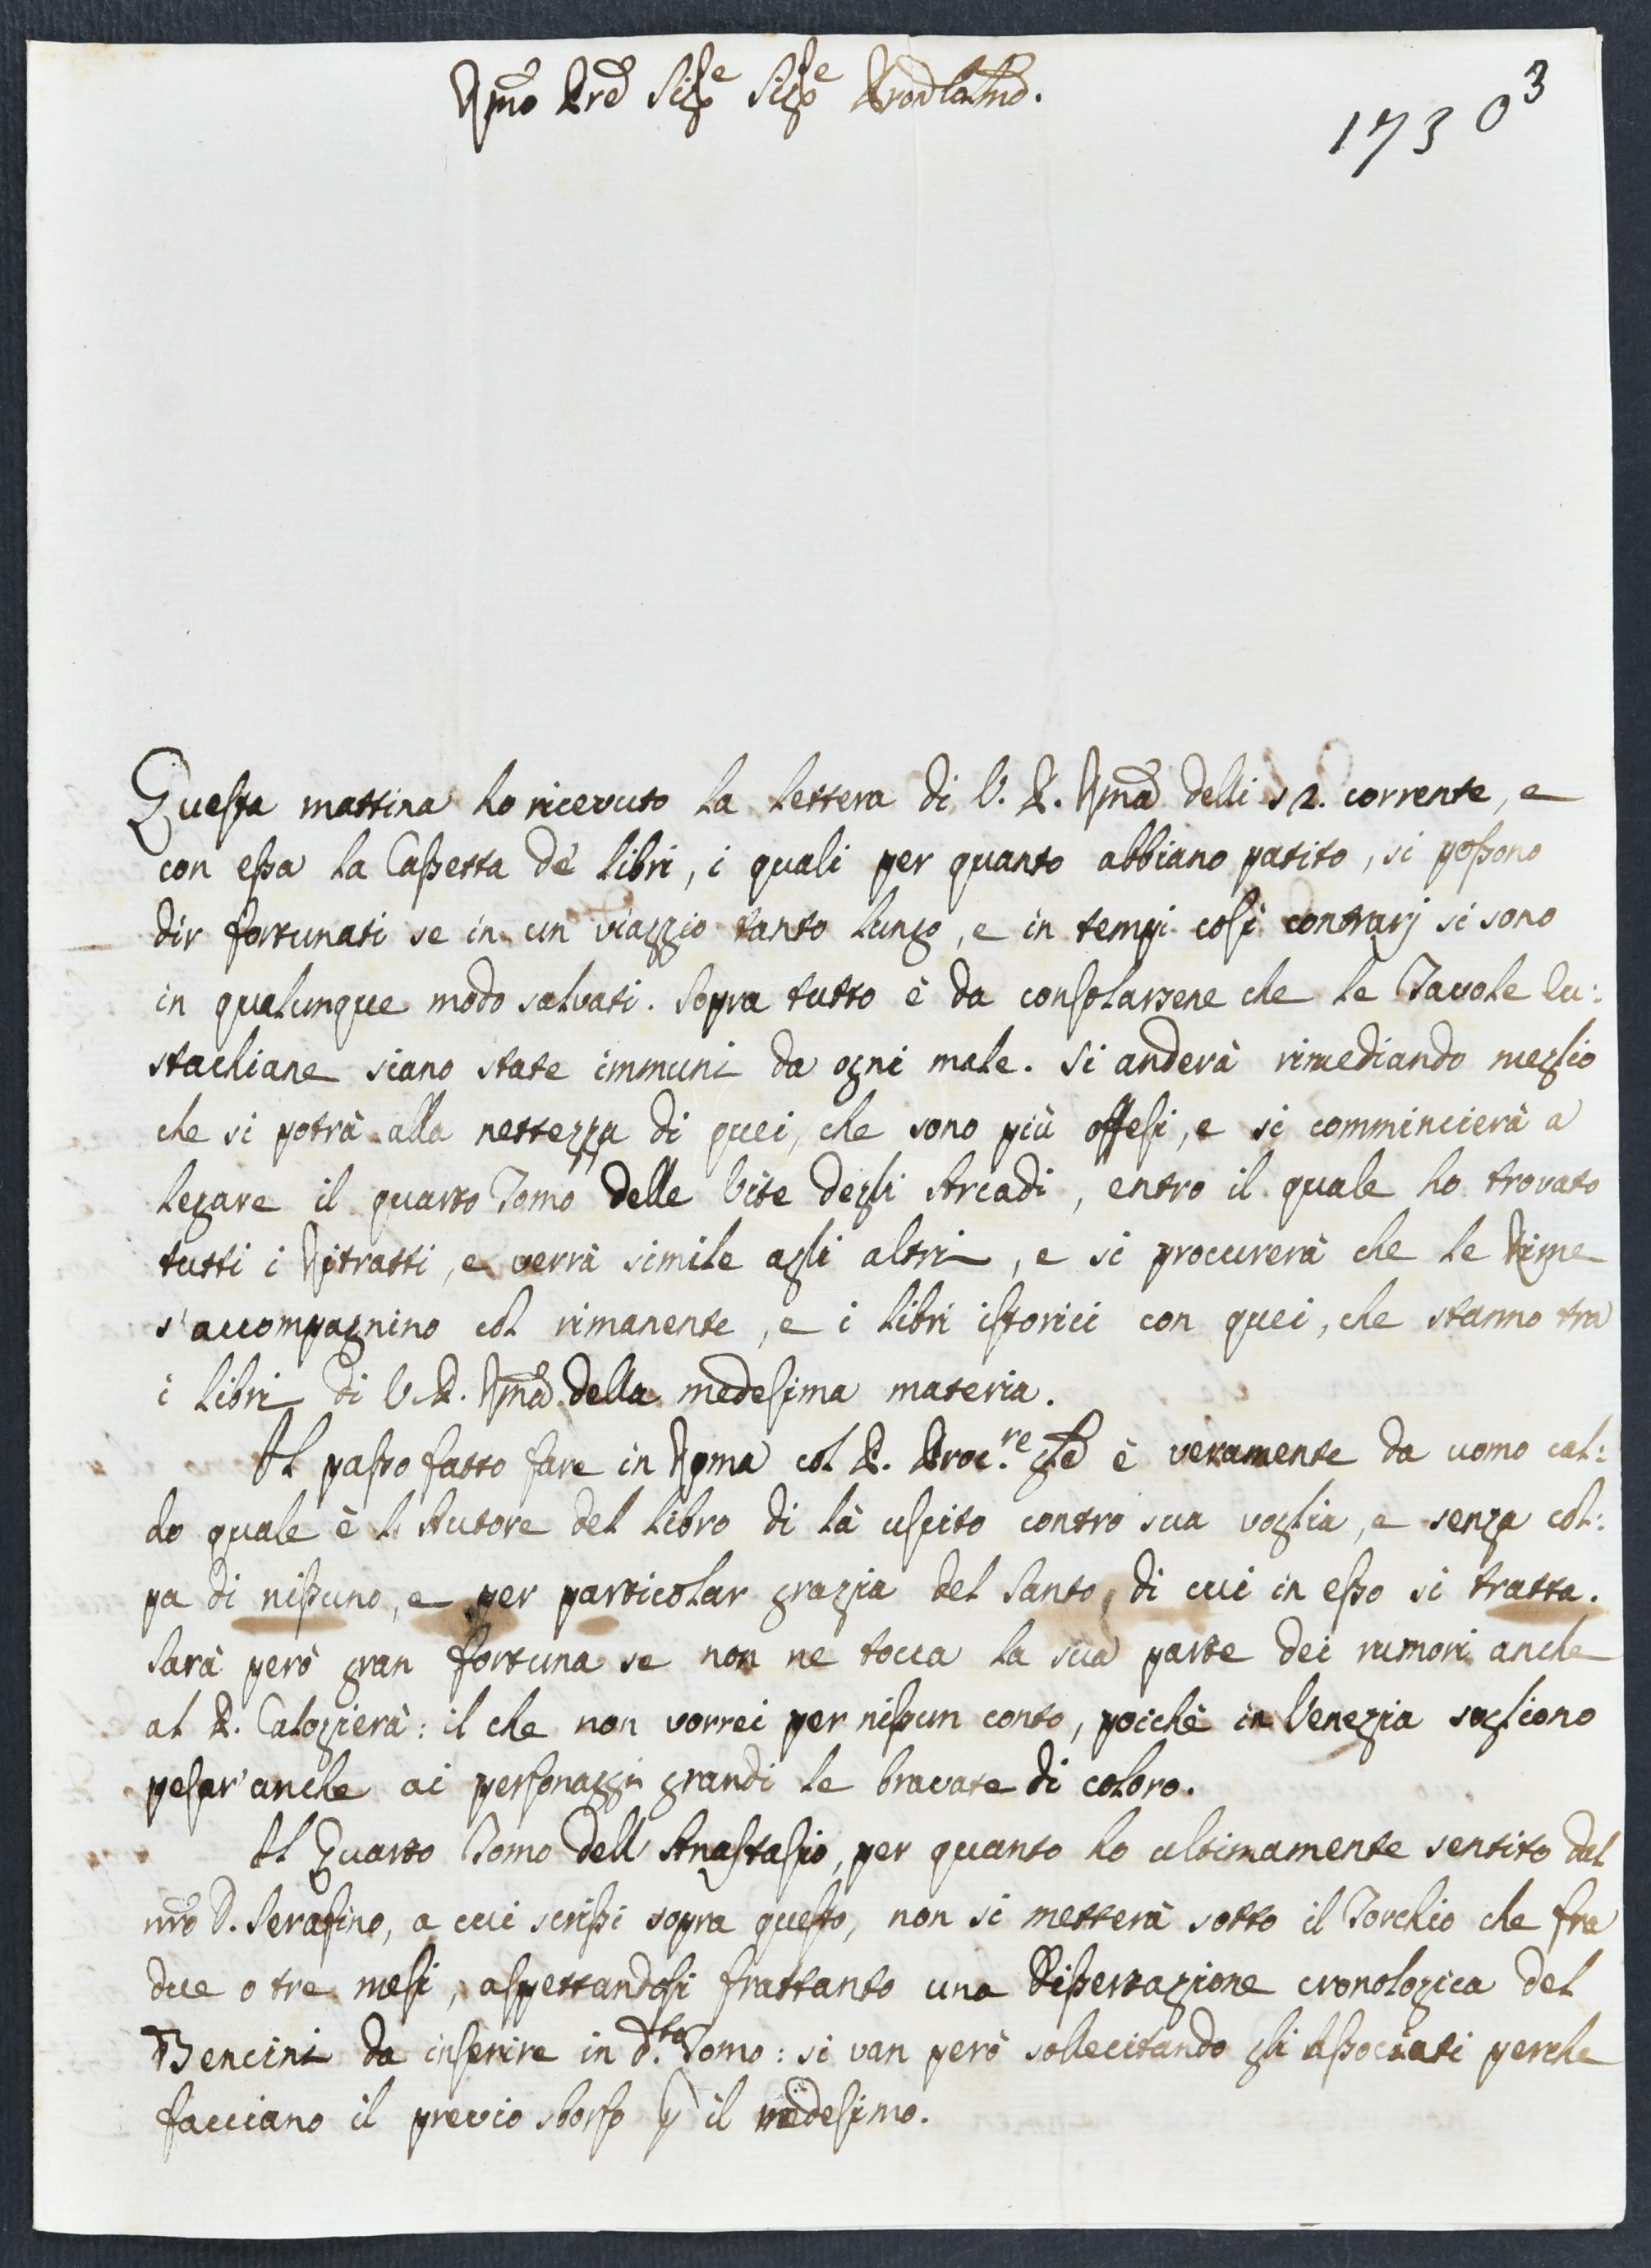 Rmo Pre Sigre Sigre Pron Colmo.
1730 3
Questa mattina ho ricevuto la lettera di V. P. Rma delli 12. corrente, e
con essa la Cassetta de' libri, i quali per quanto abbiano patito, si possono
dir fortunati se in un viaggio tanto lungo, e in tempi così contrarj si sono
in qualunque modo salvati. Sopra tutto è da consolarsene che le Tavole Eu:
stachiane siano state immuni da ogni male. Si anderà rimediando meglio
che si potrà alla nettezza di quei, che sono più offesi, e si commincierà a
legare il quarto Tomo delle Vite degli Arcadi, entro il quale ho trovato
tutti i Ritratti, e verrà simile agli altri, e si procurerà che le Rime
s'accompagnino col rimanente, e i libri istorici con quei, che stanno tra
i libri di V. P. Rma della medesima materia.
Il passo fatto fare in Roma col P. Proc.re Gle è veramente da uomo cal:
do quale è l'Autore del libro di là uscito contro sua voglia, e senza col:
pa di nissuno, e per particolar grazia del Santo, di cui in esso si tratta.
Sarà però gran fortuna se non ne tocca la sua parte dei rumori anche
al P. Calogierà: il che non vorrei per nissun conto, poichè in Venezia sogliono
pesar' anche ai personaggi grandi le bravate di coloro.
Il Quarto Tomo dell'Anastasio, per quanto ho ultimamente sentito dal
nro D. Serafino, a cui scrissi sopra questo, non si metterà sotto il Torchio che fra
due o tre mesi, aspettandosi frattanto una Dissertazione cronologica del
Bencini da inserire in d.to Tomo: si van però sollecitando gli Associati perche
facciano il previo sborso p il medesimo.